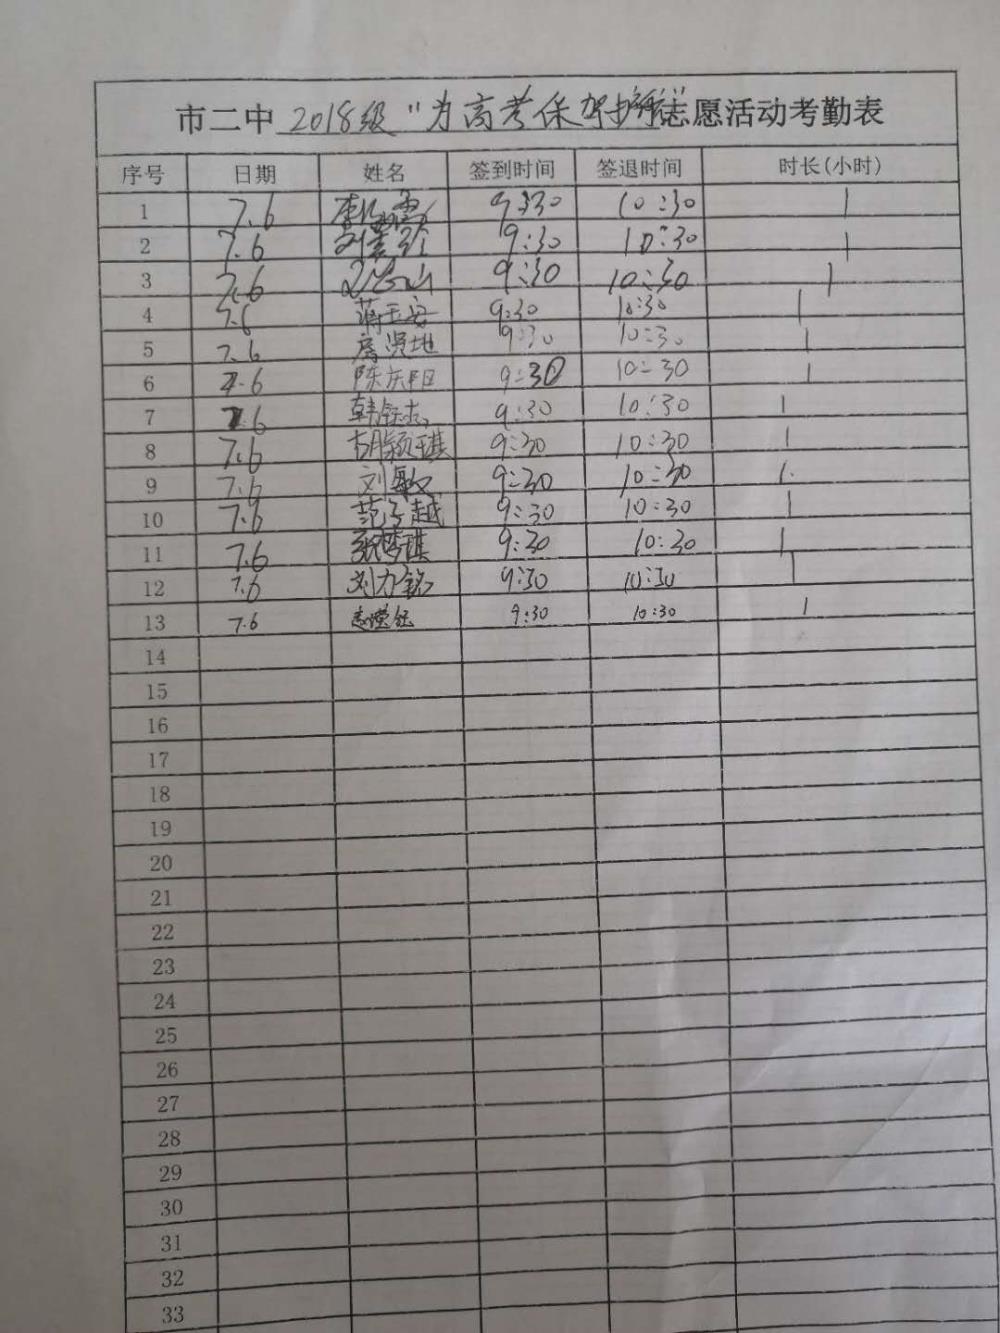 市二中 2018级“为高考保驾护航”志愿活动考勤表
序号 日期 姓名 签到时间 签退时间 时长(小时)
1 7.6 9:30 10:30 1
2 7.6 9:30 10:30 1
3 7.6 9:30 10:30 1
4 7.6 蒋玉安 9:30 10:30 1
5 7.6 9:30 10:30 1
6 7.6 陈庆阳 9:30 10:30 1
7 7.6 9:30 10:30 1
8 7.6 胡颖琪 9:30 10:30 1
9 7.6 刘敏 9:30 10:30 1
10 7.6 范子越 9:30 10:30 1
11 7.6 张梦琪 9:30 10:30 1
12 7.6 刘力铭 9:30 10:30 1
13 7.6 9:30 10:30 1
14
15
16
17
18
19
20
21
22
23
24
25
26
27
28
29
30
31
32
33